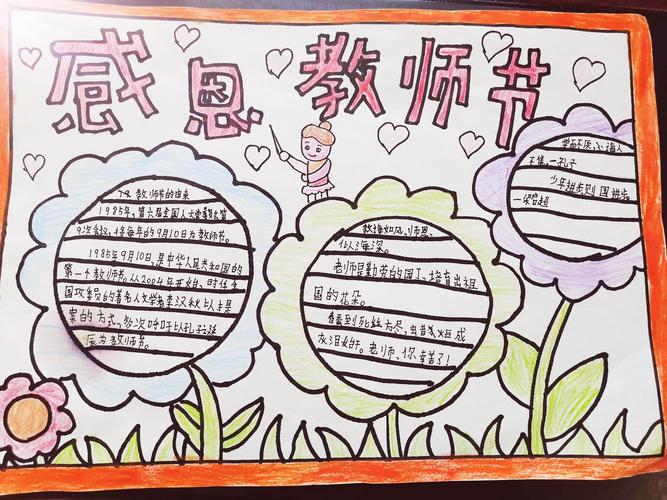 感恩教师节
教师节的由来
1985年,第六届全国人大常
9次会议,将每年的9月10日为教师节。
1985年9月10日,是中华人民共和国的
第一个教师节,从2004年开始,时任全
国政委员的著名人文学者李汉秋以提
案的方式,多次呼吁以孔
辰为教师节。
教诲如风,师恩
似海深。
老师是勤劳的园丁,培育出祖
国的花朵。
春蚕到死丝方尽,
灰泪始干。老师,你幸苦了!
学而不厌,诲人
不倦。一孔子
少年进步则国进步。
一梁启超